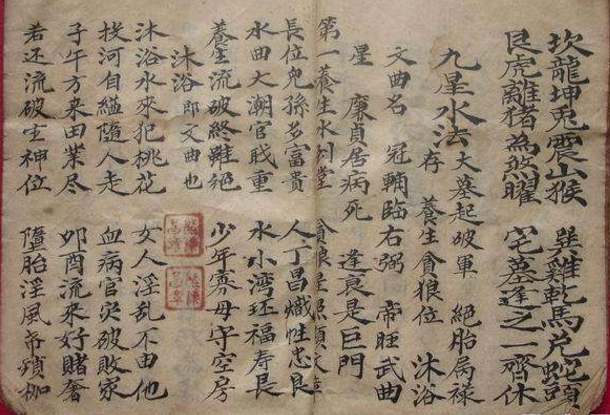 坎龍坤兎震山猴 巽雞乾馬兊蛇頭
艮虎離猪為煞曜 宅墓逢之一齊休
九星水法 大墓起破軍 絕胎為祿
存 養生貪狼位 沐浴
文曲名 冠輔臨右弼 帝旺武曲
星 廉貞居病死 逢衰是巨門
第一養生水到堂 貪狼星照顯文章
長位兒孫多富貴 人丁昌熾性忠良
水曲大潮官戝重 水小湾环福寿長
養生流破終雖絕 少年寡母守空房
沐浴 郎文曲也
沐浴水來犯桃花 女人淫乱不由他
投河自縊隨人走 血病官灾破敗家
子午方来田業尽 卯酉流來好賭奢
若还流破生神位 墮胎淫風帶鎖枷